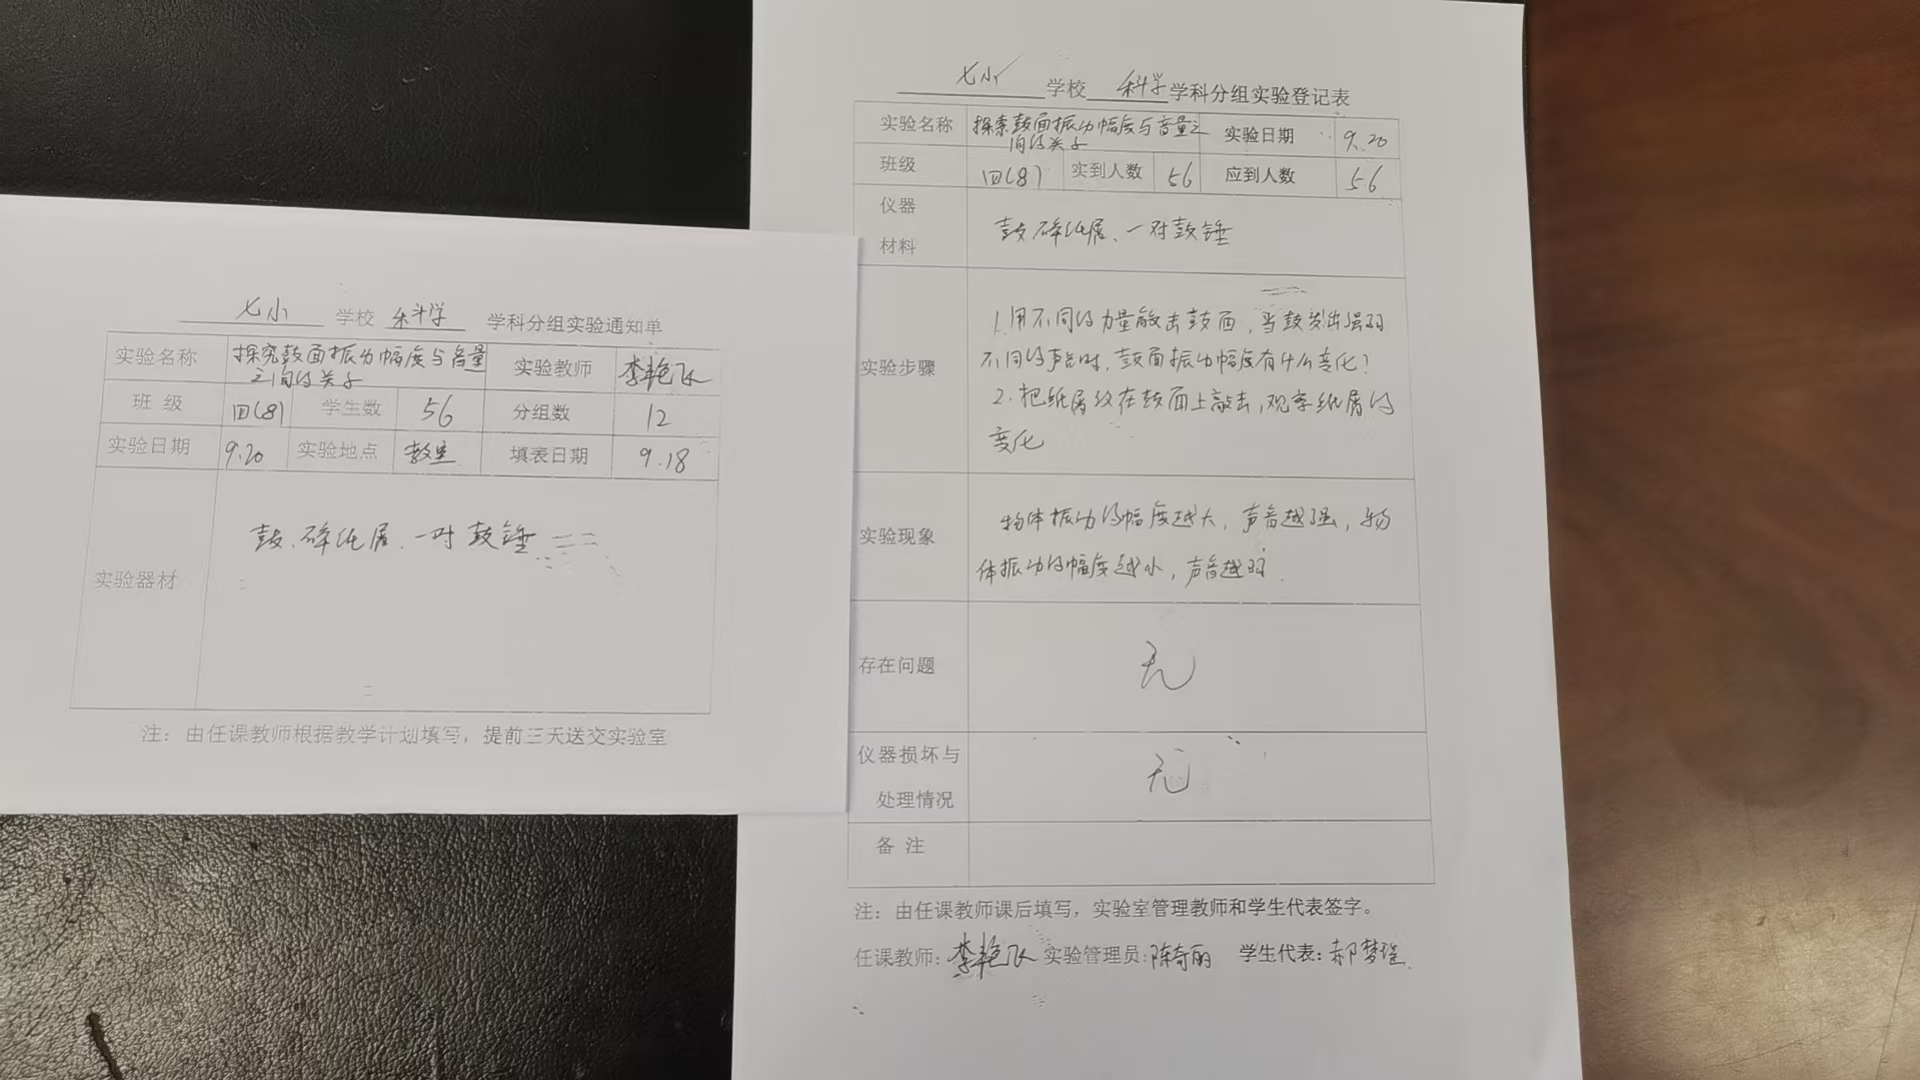 七小 学校 科学 学科分组实验通知单
实验名称 探究鼓面振动幅度与音量
之间的关系 实验教师 李艳飞
班 级 四(8) 学生数 56 分组数 12
实验日期 9.20 实验地点 教室 填表日期 9.18
实验器材 鼓、碎纸屑、一对鼓锤
注：由任课教师根据教学计划填写，提前三天送交实验室
七小 学校 科学 学科分组实验登记表
实验名称 探索鼓面振动幅度与音量之
间的关系 实验日期 9.20
班级 四(8) 实到人数 56 应到人数 56
仪器
材料 鼓 碎纸屑、一对鼓锤
实验步骤 1.用不同的力量敲击鼓面，当鼓发出强弱
不同的声音时，鼓面振动幅度有什么变化？
2.把纸屑放在鼓面上敲击，观察纸屑的
变化
实验现象 物体振动的幅度越大，声音越强，物
体振动的幅度越小，声音越弱.
存在问题 无
仪器损坏与
处理情况 无
备 注
注：由任课教师课后填写，实验室管理教师和学生代表签字。
任课教师：李艳飞 实验管理员：陈奇丽 学生代表：郝梦瑶